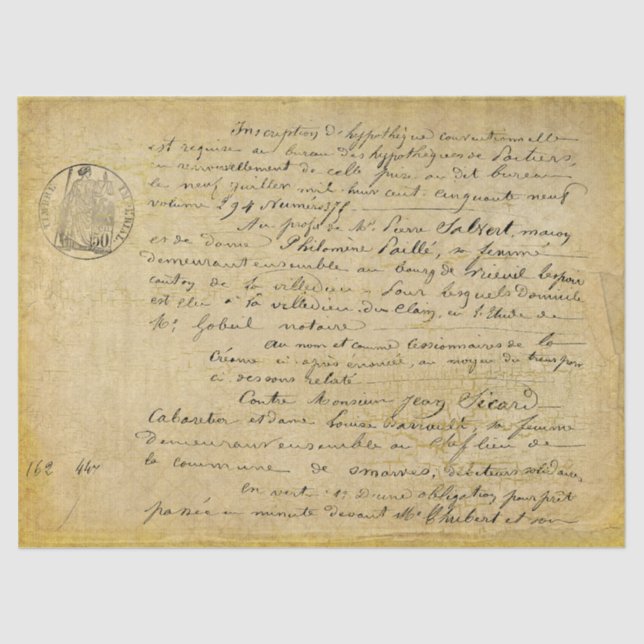 Inscription d'hypothèque conventionnelle
est requise au bureau des hypothèques de Poitiers,
en renouvellement de celle prise au dit bureau
le neuf juillet mil huit cent cinquante neuf
volume 294 Numéro
Au profit de Mr. Pierre Salvert, maçon
et de dame Philomène Paillé, sa femme
demeurant ensemble au bourg de
canton de la villedieu - Pour lesquels Domicile
est élu à la villedieu du Clain, en l'Etude de
Me. Gobeil notaire
au nom et comme cessionnaires de la
Créance ci après énoncée, au moyen du transport
ci dessous relaté
Contre Monsieur Jean Sicard
Cabaretier et dame Louise Barrault, sa femme
Demeurant ensemble au Chef lieu de
la commune de Smarves, débiteurs solidaires
En vertu 1º D'une obligation pour prêt
passée en minute devant Me et son
TIMBRE IMPERIAL
50
162 447